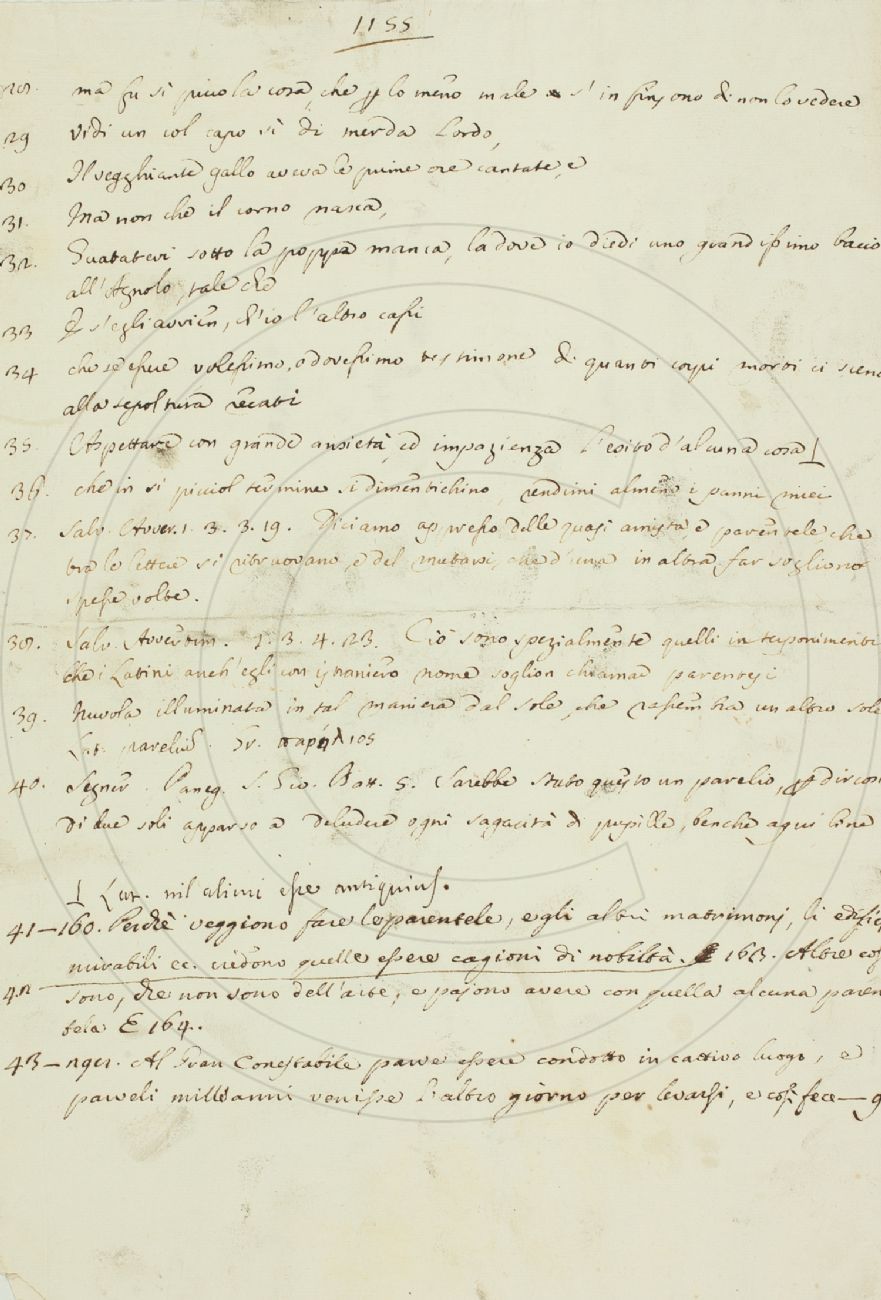 1155
28. ma fu sì picciola cosa, che p lo meno male s'infingono di non lo vedere
29 vidi un col capo sì di merda lordo,
30 Il vegghiante gallo aveva le prime ore cantate, e
31. Ma non che il corno nasca,
32. Guatatevi sotto la poppa manca, la dove io diedi uno grandissimo bacio
all'Agnolo, tale che
33 E s'egli avvien, ch'io l'altro cassi
34 che se essere volessimo, o dovessimo testimone di quanti corpi morti ci sieno
alla sepoltura recati
35. Aspettare con grande ansietà, ed impazienza l'esito d'alcuna cosa ⊥
36. che in sì picciol termine si dimentichino, rendimi almeno i panni miei
37. Salv. Avver. 1. 3. 3. 19. Diciamo appresso delle quasi amistà, e parentele che
tra le lettere si ritruovano, e del mutarsi, che d'una in altra far sogliono
spesse volte.
38. Salv. Avvertim. 1. 3. 4. 23. Ciò sono spezialmente quelli interponimenti
che i Latini anch'eglicon istraniero nome soglion chiamare parentesi
39. Nuvola illuminata in tal maniera dal sole, che rassembra un altro sole
Lat. parelius. Gr. παρήλιος
40. Segner. Paneg. S. Gio. Batt. 5. Sarebbe stato questo un parelio, p dir così
di due soli apparso a deludere ogni sagacità di pupille, benchè aquiline
⊥ Lat. nil alicui esse antiquius.
41—160. Perchè veggiono fare le parentele, e gli altri matrimonj, li edificj
mirabili ec. credono quelle essere cagioni di nobiltà. E 163. Altre cose
42 sono, che non sono dell'arte, e pajono avere con quella alcuna paren
tela E 164.
43— Al Gran Conestabile parve essere condotto in cattivo luogo, e
parveli mill'anni venisse l'altro giorno per levarsi, e così fece—